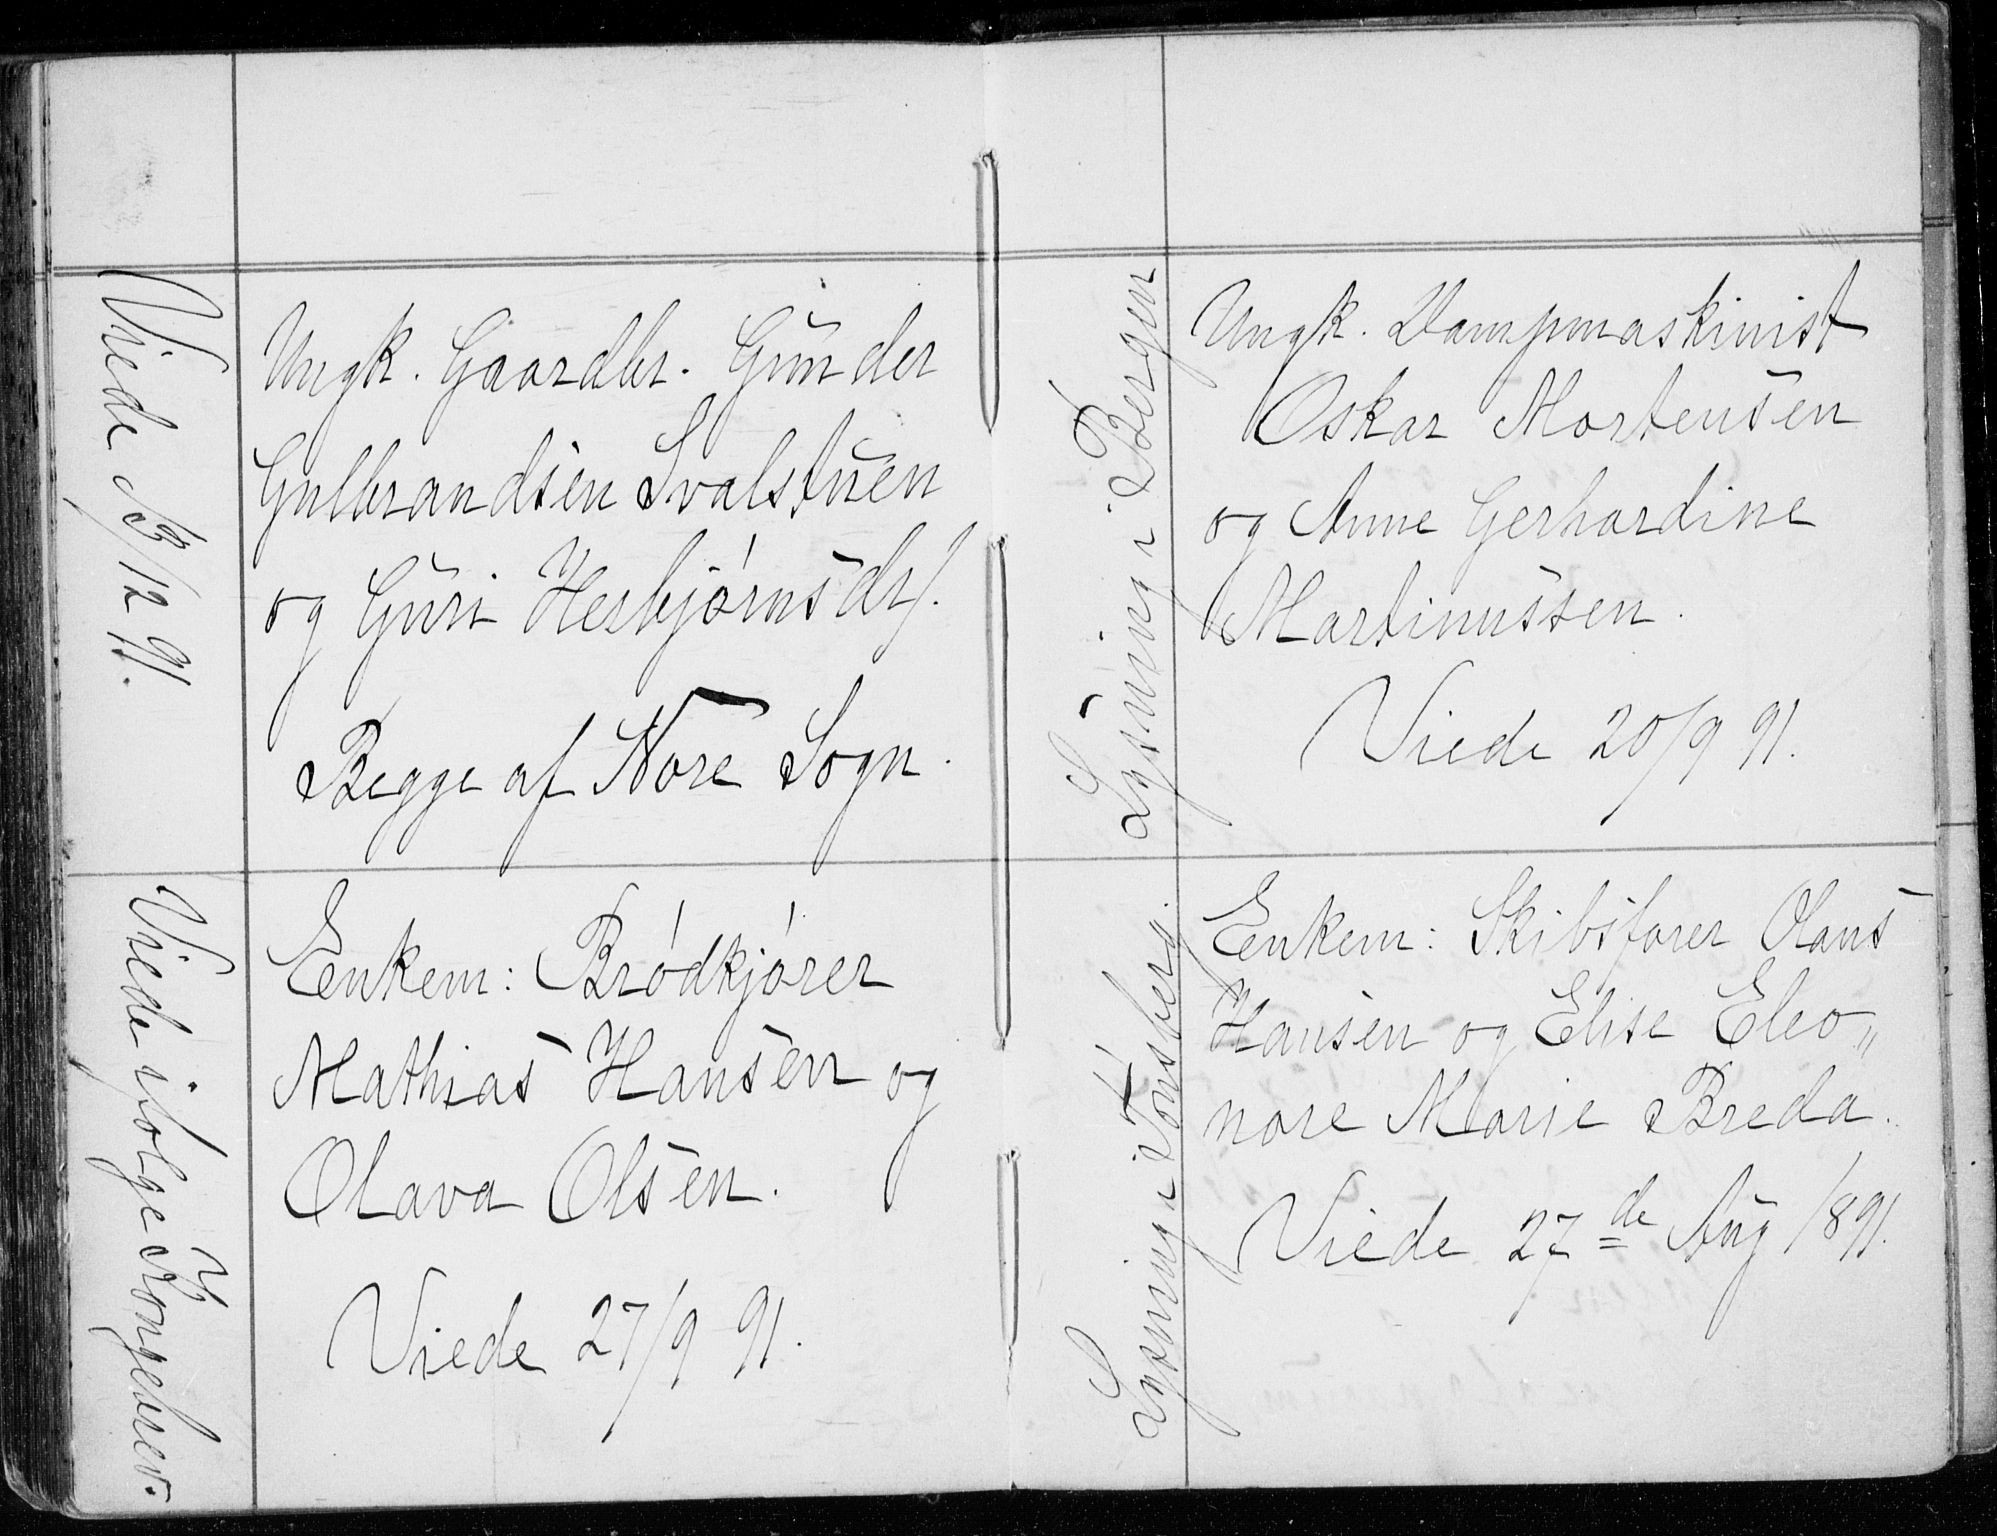 Viede 13/12 91.
Ungk. Gaardbr. Gunder
Gulbrandsen Svalstuen
og Guri Herbjørnsdr.
Begge af Nore Sogn.
Viede ifølge Kongebrev.
Enkem: Brødkjører
Mathias Hansen og
Olava Olsen.
Viede 27/9 91.
Lysning i Bergen
Ungk. Dampmaskinist
Oskar Mortensen
og Anne Gerhardine
Martinussen.
Viede 20/9 91.
Lysning i Tønsberg.
Enkem: Skibsfører Olaus
Hansen og Elise Eleo„
nore Marie Breda.
Viede 27de Aug 1891.